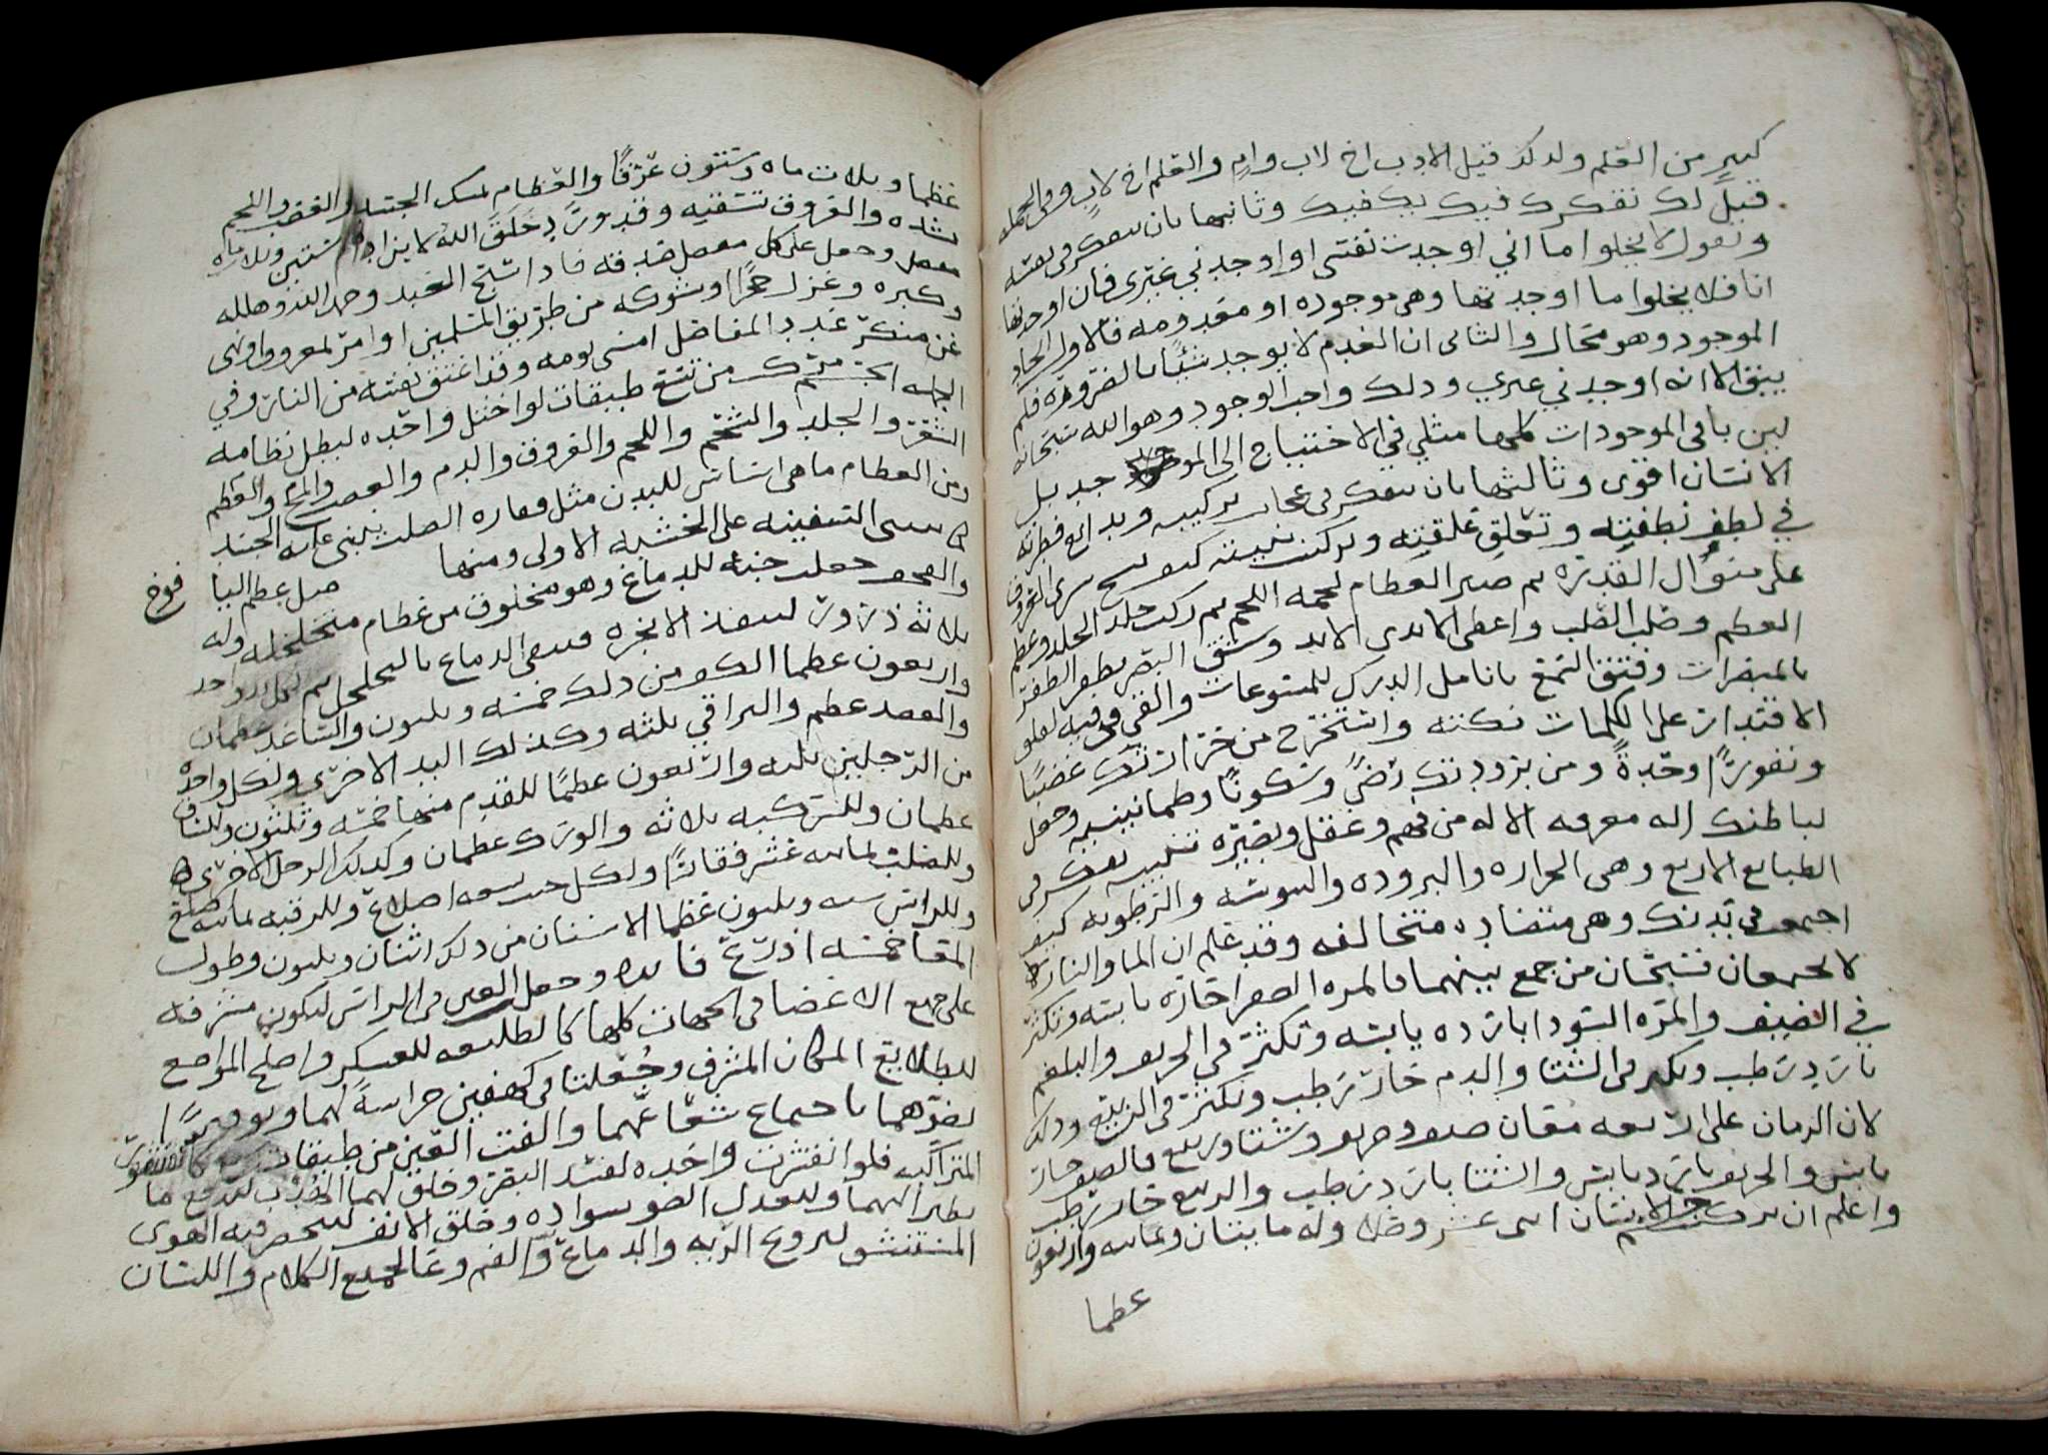 كبير من العلم ولذلك قيل الادب اخ لاب وام والعلم اخ لاب وفي الجمله
قيل لك تفكرك فيك يكفيك وثانيها بان تتفكر في نفسه
وتقول لا يخلوا ما اني اوجدت نفسي او اوجدني غيري فان اوجدتها
انا فلا يخلوا ما اوجدتها وهي موجوده او معدومه فالاول ايجاد
الموجود وهو محال والثاني ان العدم لا يوجد شيئا بالضروره فلم
يبق الا انه اوجدني غيري وذلك واجب الوجود وهو الله سبحانه
لين باقي الموجودات كلها مثلي في الاحتياج الى الموجد بل
الانسان اقوى وثالثها بان تتفكر في عجايب تركيبه وبدايع فطرته
في لطف نطفته وتعلق علقته وتركيب بنيته كيف نسج سدى العروق
على منوال القدره ثم صير العظام لحمه اللحم ثم ركب جلد الجلد وعظم
العظم وصلب الصلب واعطى الايدي الايد وشق البصر بظفر الظفر
بالمبصرات وفتق السمع بانامل الدرك للمسموعات والقى في فيه لعلو
الاقتدار على الكلمات نكته واستخرج من حرارتك غضبا
ونفورا وحدة ومن برودتك رضى وسكونا وطمانينه وجعل
لباطنك اله معرفه الاله من فهم وعقل وبصيره تنبيه تفكر في
الطبايع الاربع وهي الحراره والبروده واليبوسه والرطوبه كيف
اجتمعت في بدنك وهي متضاده متخالفه وقد علم ان الما والنار
لا يجتمعان فسبحان من جمع بينهما فالمره الصفرا حاره يابسه وتكثر
في الصيف والمره السودا بارده يابسه وتكثر في الخريف والبلغم
بارد رطب ويكثر في الشتا والدم حار رطب ويكثر في الربيع وذلك
لان الزمان على اربعه معان صيف وخريف وشتا وربيع فالصيف حار
يابس والخريف بارد يابس والشتا بارد رطب والربيع حار رطب
واعلم ان تركيب الانسان اثنى عشر وصلا وله مايتان وثمانيه واربعون
عظما
عظما وثلاث مايه وستون عرقا والعظام تمسك الجسد والعصب واللحم
يشده والعروق تسقيه وقد ورد خلق الله لابن ادم ستين وثلاث مايه
مفصل وجعل على كل مفصل صدقه فاذا سبح العبد وحمد الله وهلله
وكبره وعزل حجرا او شوكه من طريق المسلمين او امر بمعروف او نهى
عن منكر عدد المفاصل امسى يومه وقد اعتق نفسه من النار وفي
الجمله الجسم مركب من تسع طبقات لو اختل واحده لبطل نظامه
الشعر والجلد والشحم واللحم والعروق والدم والعصب والمخ والعظم
ومن العظام ما هي اساس للبدن مثل فقاره الصلب يبنى عليه الجسد
كما تبنى السفينه على الخشبه الاولى ومنها مثل عظم اليا فوخ
والقحف جعلت جنه للدماغ وهو مخلوق من عظام متخلخله وله
ثلاثه دروز لينفذ الابخره فيبقى الدماغ بالتحلحل ثم لكل يد واحد
واربعون عظما الكف من ذلك خمسه وثلثون والساعد عظمان
والعضد عظم والتراقي ثلثه وكذلك اليد الاخرى ولكل واحده
من الرجلين ثلثه واربعون عظما للقدم منها خمسه وثلثون وللساق
عظمان وللركبه ثلاثه والورك عظمان وكذلك الرجل الاخرى
وللصلب ثمانيه عشر فقارا ولكل جنب تسعه اضلاع وللرقبه ثمانيه
وللراس سته وثلثون عظما الاسنان من ذلك اثنان وثلثون وطول
المعا خمسه اذرع فايده وجعل العين في الراس لتكون مشرفه
على جميع الاعضا في الجهات كلها كالطليعه للعسكر واصلح المواضع
للطلايع المكان المشرف وجعلتا في كهفين حراسة لهما وتوفيرا
لضوءهما باجتماع شعاعهما والفت العين من طبقات كالقشور
المتراكبه فلو انقشرت واحده لفسد البصر وخلق لهما الهدب لتدفع ما
يطير اليهما ولتعدل الضو بسواده وخلق الانف لينحصر فيه الهوى
المستنشق لترويح الريه والدماغ والفم وعا لجميع الكلام واللسان